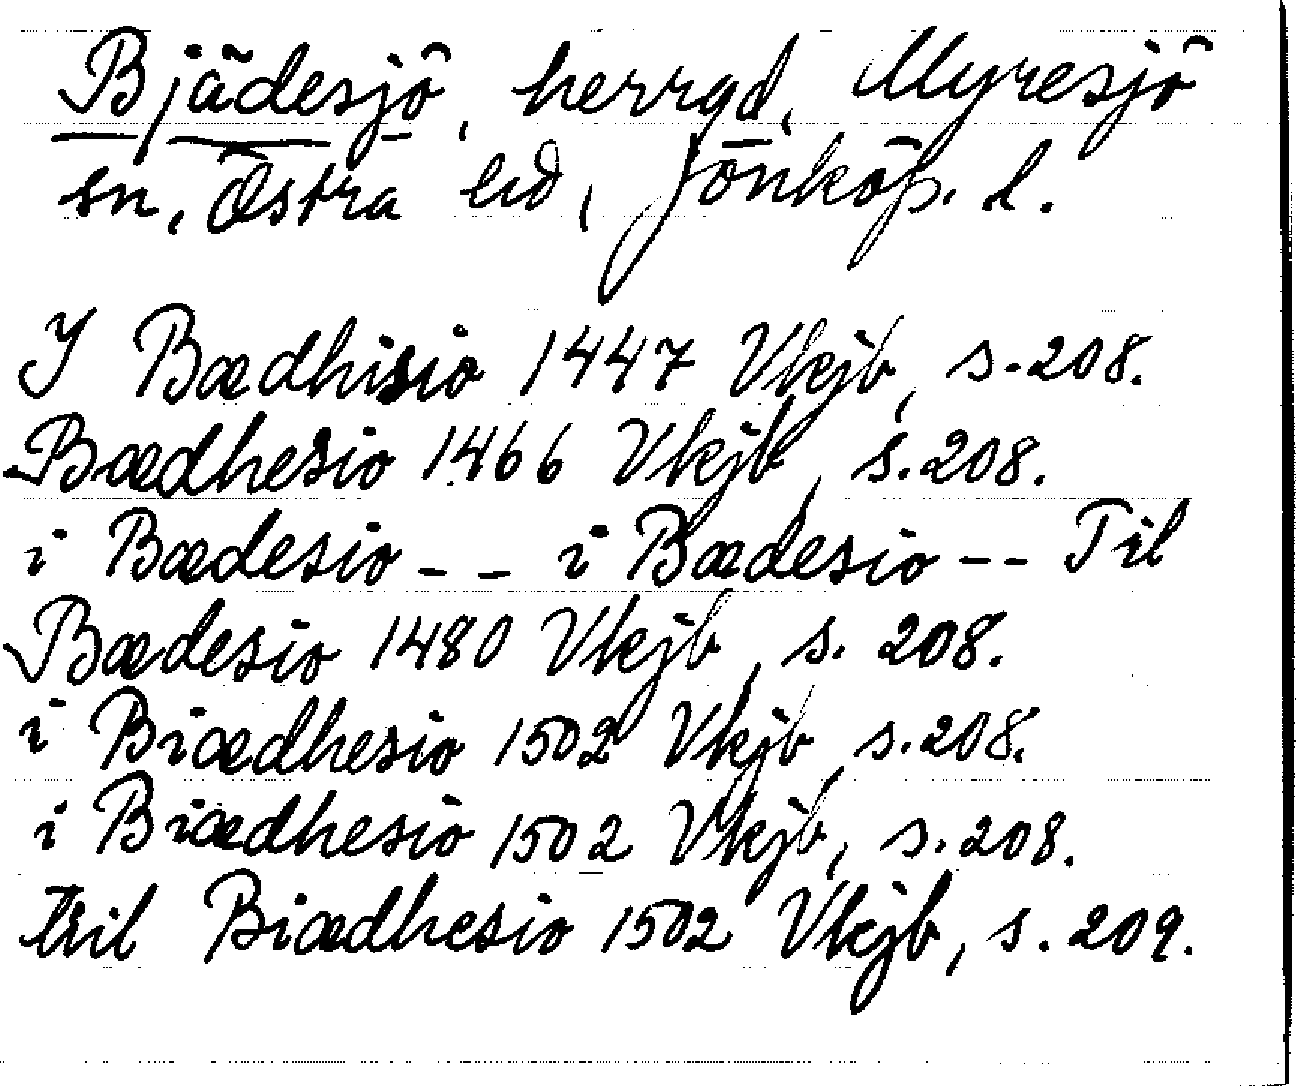 Bjädesjö, herrgd, Myresjö
sn, Östra hd, Jönköp. l.
I Bædhisio 1447 Vkjb, s. 208.
Bædhesio 1466 Vkjb, s. 208.
i Bædesio - - i Bædesio - - Til
Bædesio 1480 Vkjb, s. 208.
i Biædhesio 1502 Vkjb, s. 208.
i Biædhesio 1502 Vkjb, s. 208.
till Biædhesio 1502 Vkjb, s. 209.